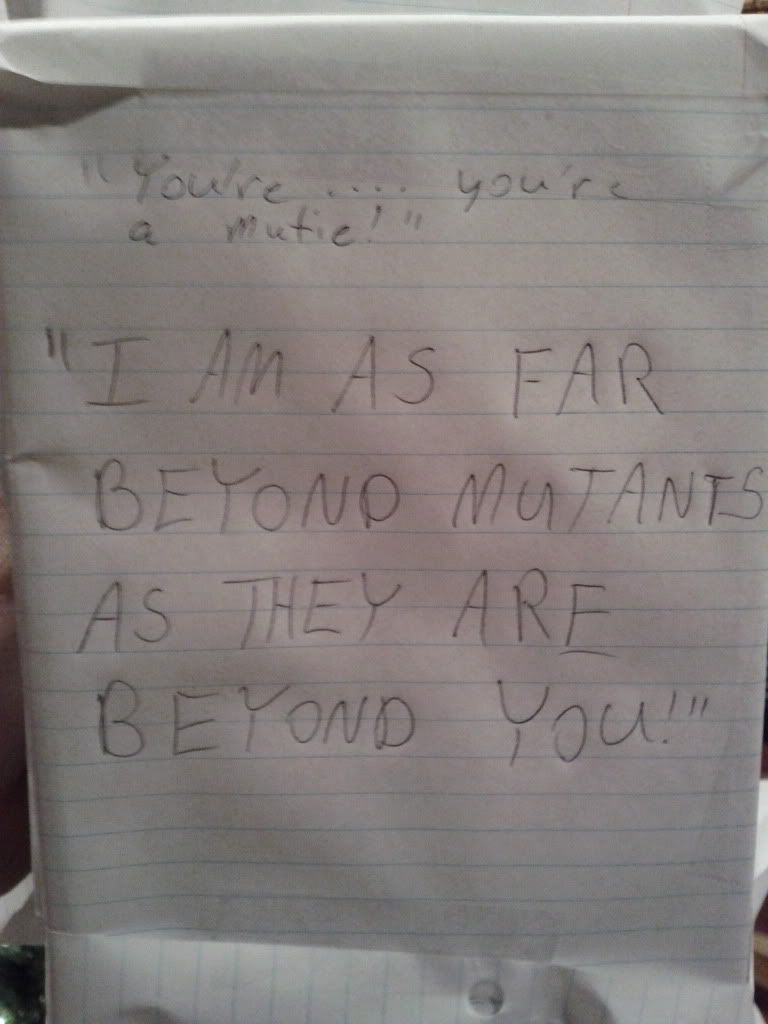 "You're .... you're
a mutie!"
"I AM AS FAR
BEYOND MUTANTS
AS THEY ARE
BEYOND YOU!"